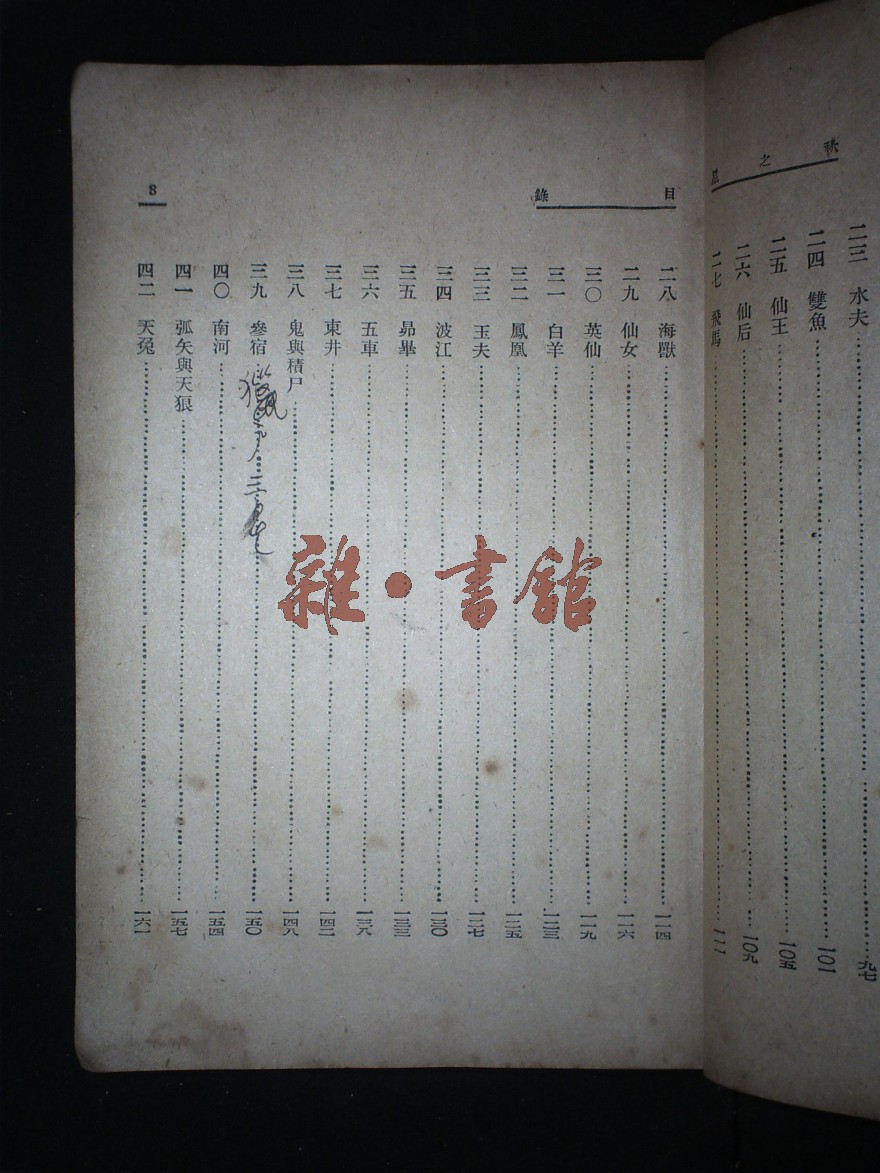 秋之星
二三 水夫……九七
二四 雙魚……一〇一
二五 仙王……一〇五
二六 仙后……一〇九
二七 飛馬……一一一
目錄
8
二八 海獸……一一四
二九 仙女……一一六
三〇 英仙……一一九
三一 白羊……一二三
三二 鳳凰……一二五
三三 玉夫……一二七
三四 波江……一三〇
三五 昴畢……一三三
三六 五車……一三八
三七 東井……一四二
三八 鬼與積尸……一四八
三九 參宿……一五〇
四〇 南河……一五四
四一 弧矢與天狼……一五七
四二 天兔……一六一
雜·書館